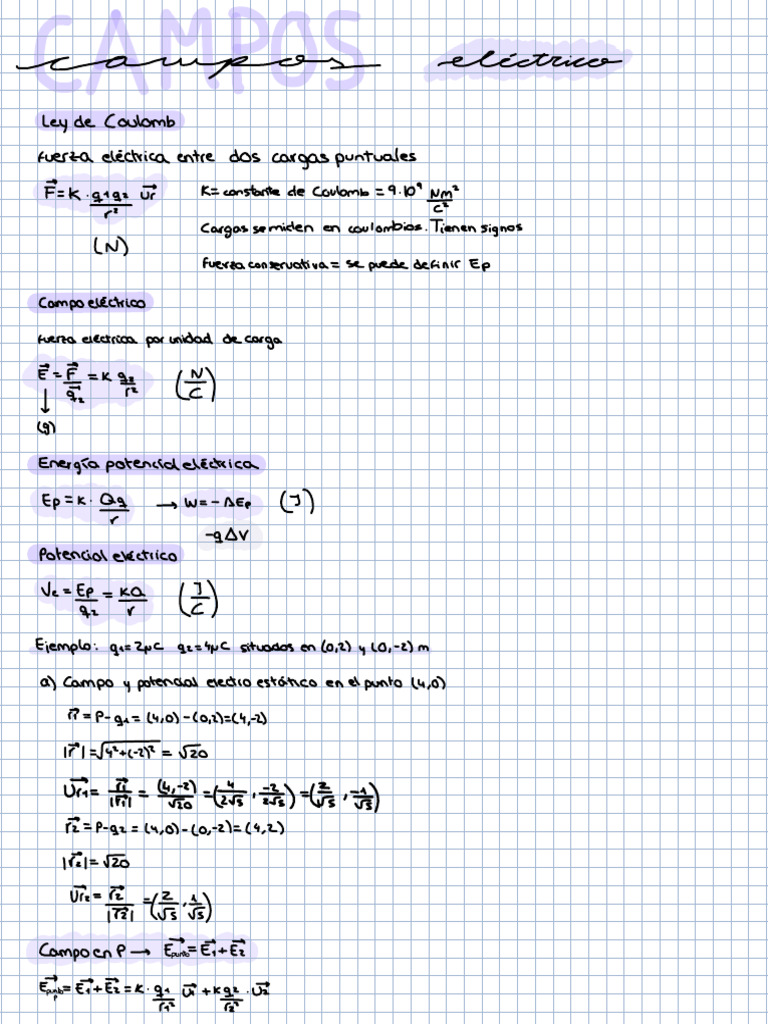 CAMPOS
campos eléctrico
Ley de Coulomb
Fuerza eléctrica entre dos cargas puntuales
F⃗ = K · q1q2/r² u⃗r
(N)
K = constante de Coulomb = 9·10⁹ Nm²/C²
Cargas se miden en coulombios. Tienen signos
Fuerza conservativa = se puede definir Ep
Campo eléctrico
Fuerza eléctrica por unidad de carga
E⃗ = F⃗/q⃗2 = K q2/r² (N/C)
↓
(g)
Energía potencial eléctrica
Ep = K · Qq/r → W = -ΔEp (J)
-qΔV
Potencial eléctrico
Ve = Ep/q2 = KQ/r (J/C)
Ejemplo: q1 = 2μC q2 = 4μC situados en (0,2) y (0,-2) m
a) Campo y potencial electro estático en el punto (4,0)
r⃗1 = P - q1 = (4,0) - (0,2) = (4,-2)
|r⃗| = √4² + (-2)² = √20
U⃗r1 = r⃗1/|r⃗1| = (4,-2)/√20 = (4/2√5, -2/2√5) = (2/√5, -1/√5)
r⃗2 = P - q2 = (4,0) - (0,-2) = (4,2)
|r⃗2| = √20
U⃗r2 = r⃗2/|r⃗2| = (2/√5, 1/√5)
Campo en P → E⃗punto = E⃗1 + E⃗2
E⃗punto P = E⃗1 + E⃗2 = K · q1/r1² u⃗1 + K q2/r2² · u⃗2